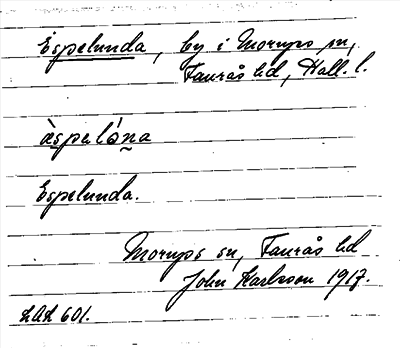 Espelunda, by i Morups sn,
Faurås hd, Hall. l.
àspəlóna
Espelunda.
Morups sn, Faurås hd
John Karlsson 1917.
LAL 601.